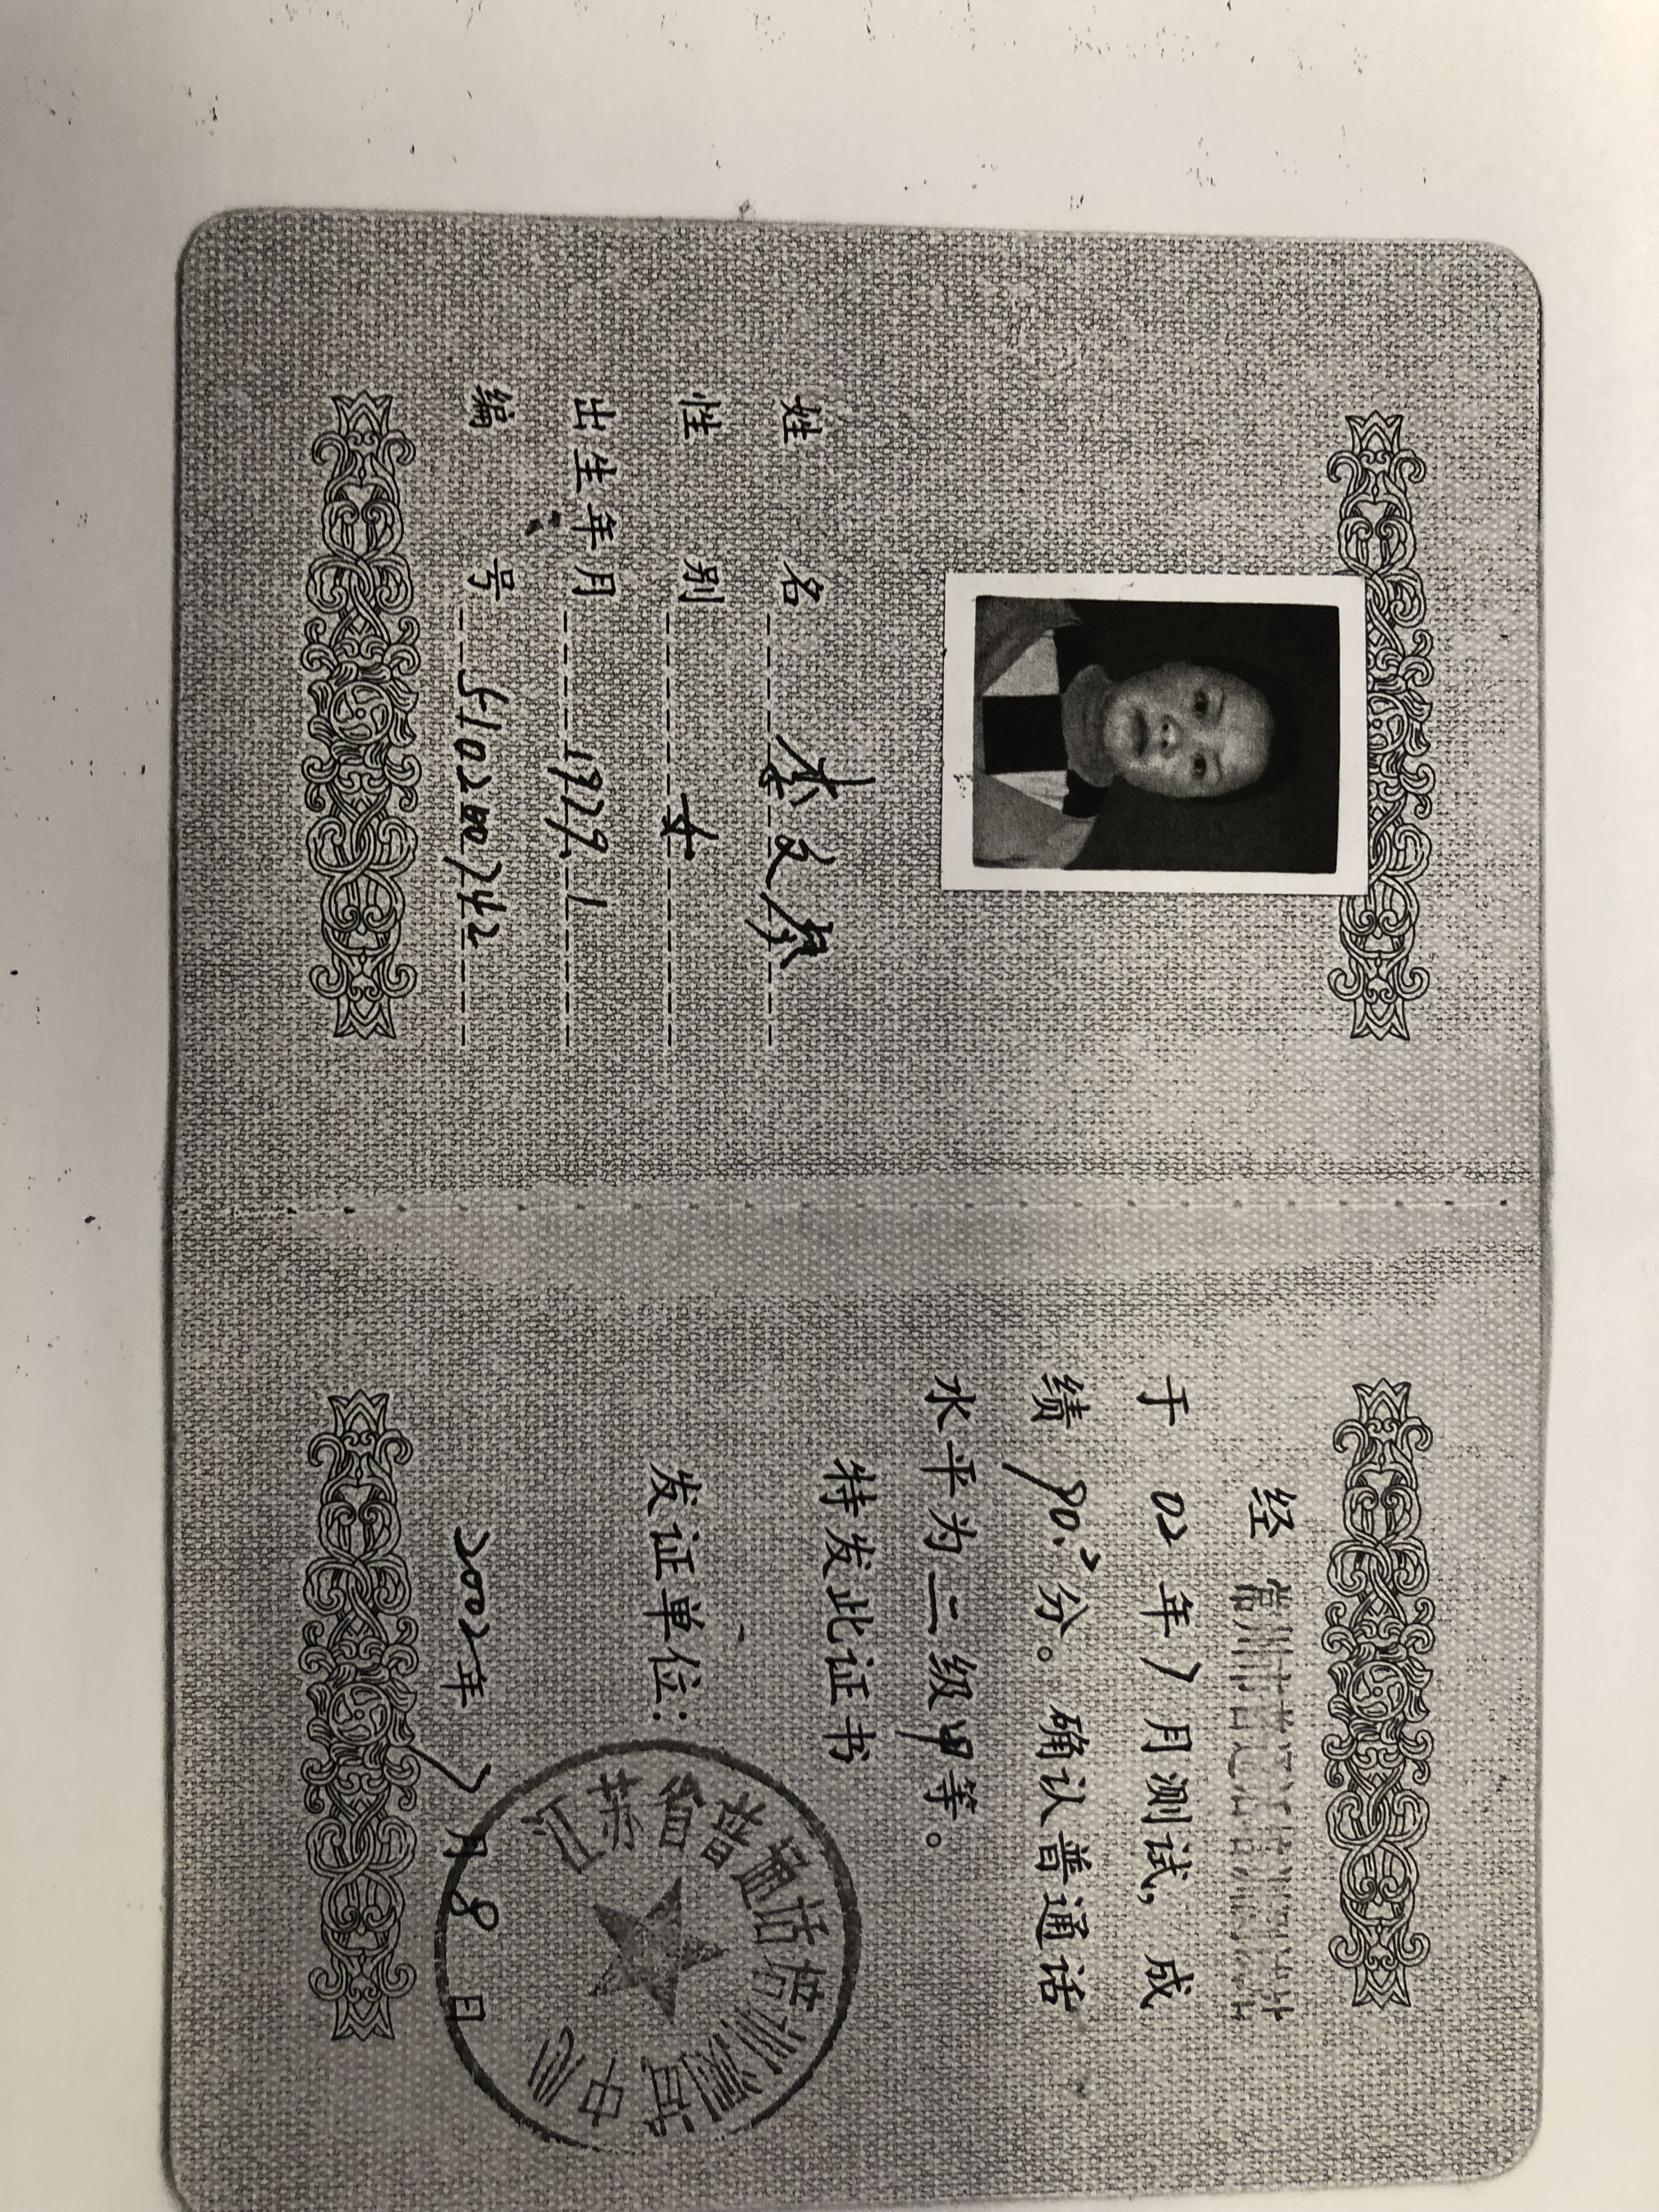 姓 名 李文琴
性 别 女
出生年月 1979.1
编 号 5102000742
经
于 02 年 7 月测试,成
绩 90.2 分。确认普通话
水平为二级甲等。
特发此证书
发证单位:
江苏省普通话培训测试中心
2002年 7 月 8 日